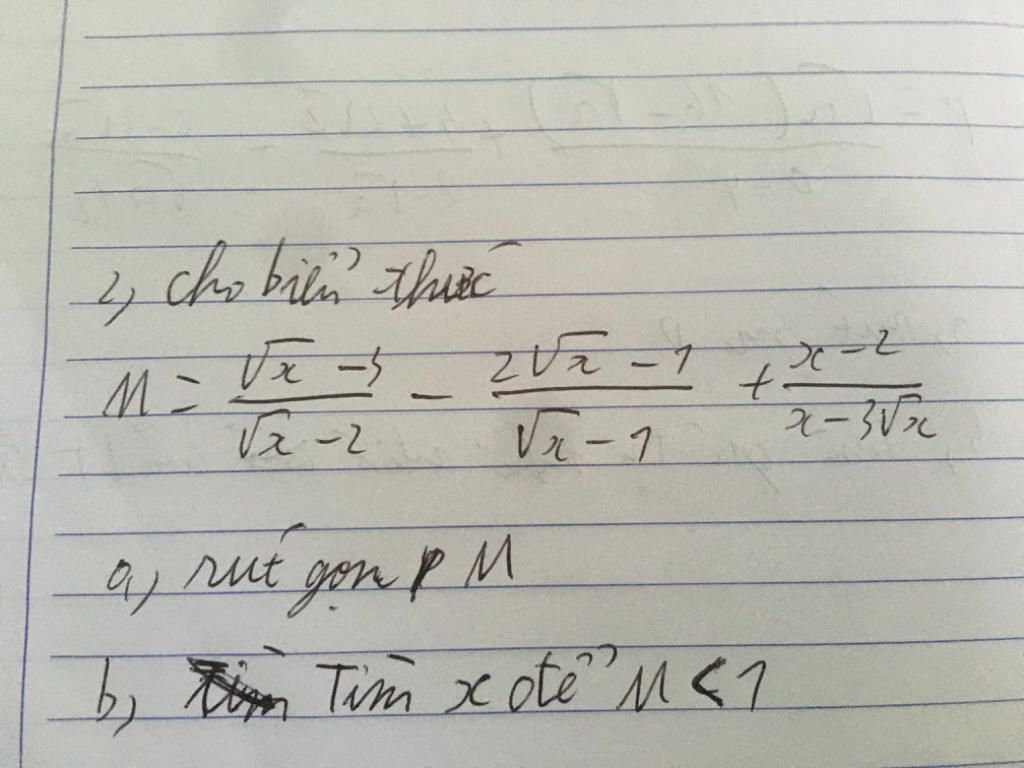 2, cho biển thức
M = \frac{\sqrt{x} - 3}{\sqrt{x} - 2} - \frac{2\sqrt{x} - 1}{\sqrt{x} - 1} + \frac{x - 2}{x - 3\sqrt{x}}
a, rút gọn M
b, Tìm x để M < 1